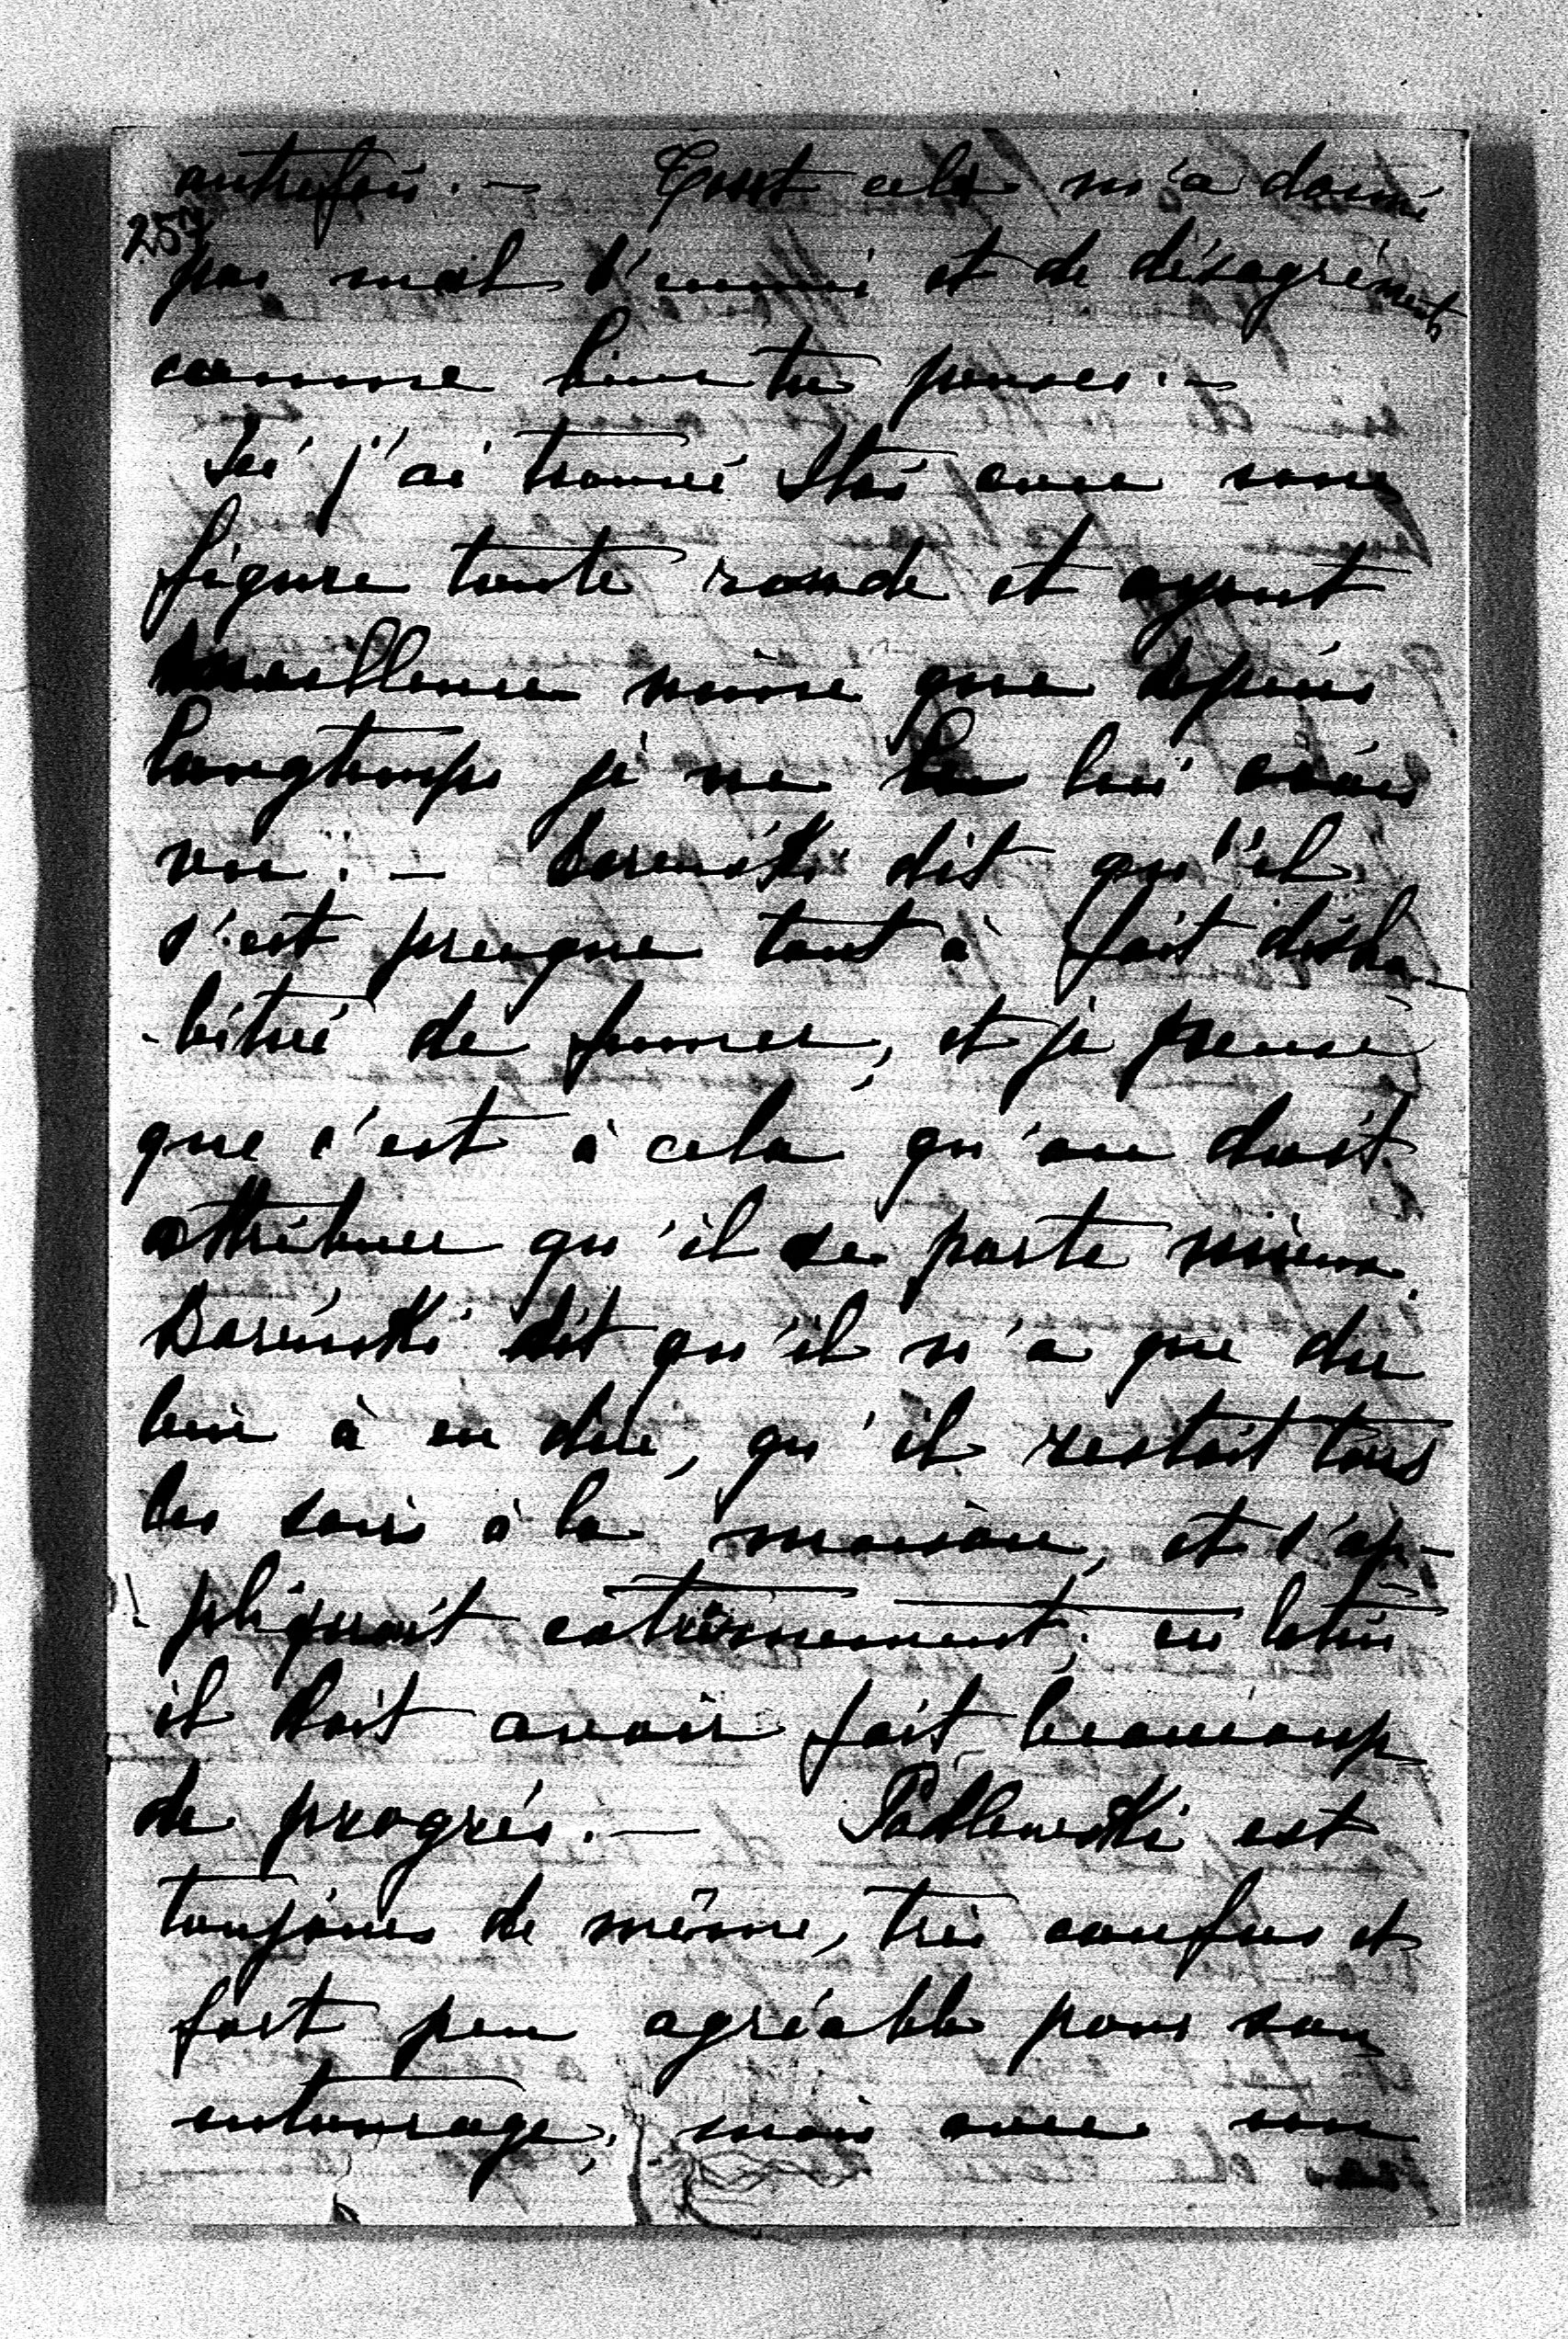 autrefois. — Tout cela m'a donné
257
pas mal d'ennui et de désagréments
comme bien tu penses. —
Ici j'ai trouvé Stas avec sa
figure toute ronde et ayant
meilleure mine que depuis
longtemps je ne lui avais
vu. — Dareński dit qu'il
s'est presque tout à fait désha
-bitué de fumer, et je pense
que c'est à cela qu'on doit
attribuer qu'il se porte mieux.
Dareński dit qu'il n'a que du
bien à en dire, qu'il restait tous
les soirs à la maison, et s'ap-
pliquait extrêmement; en latin
il doit avoir fait beaucoup
de progrès. — Padlewski est
toujours de même, très confus et
fort peu agréable pour son
entourage; mais avec son